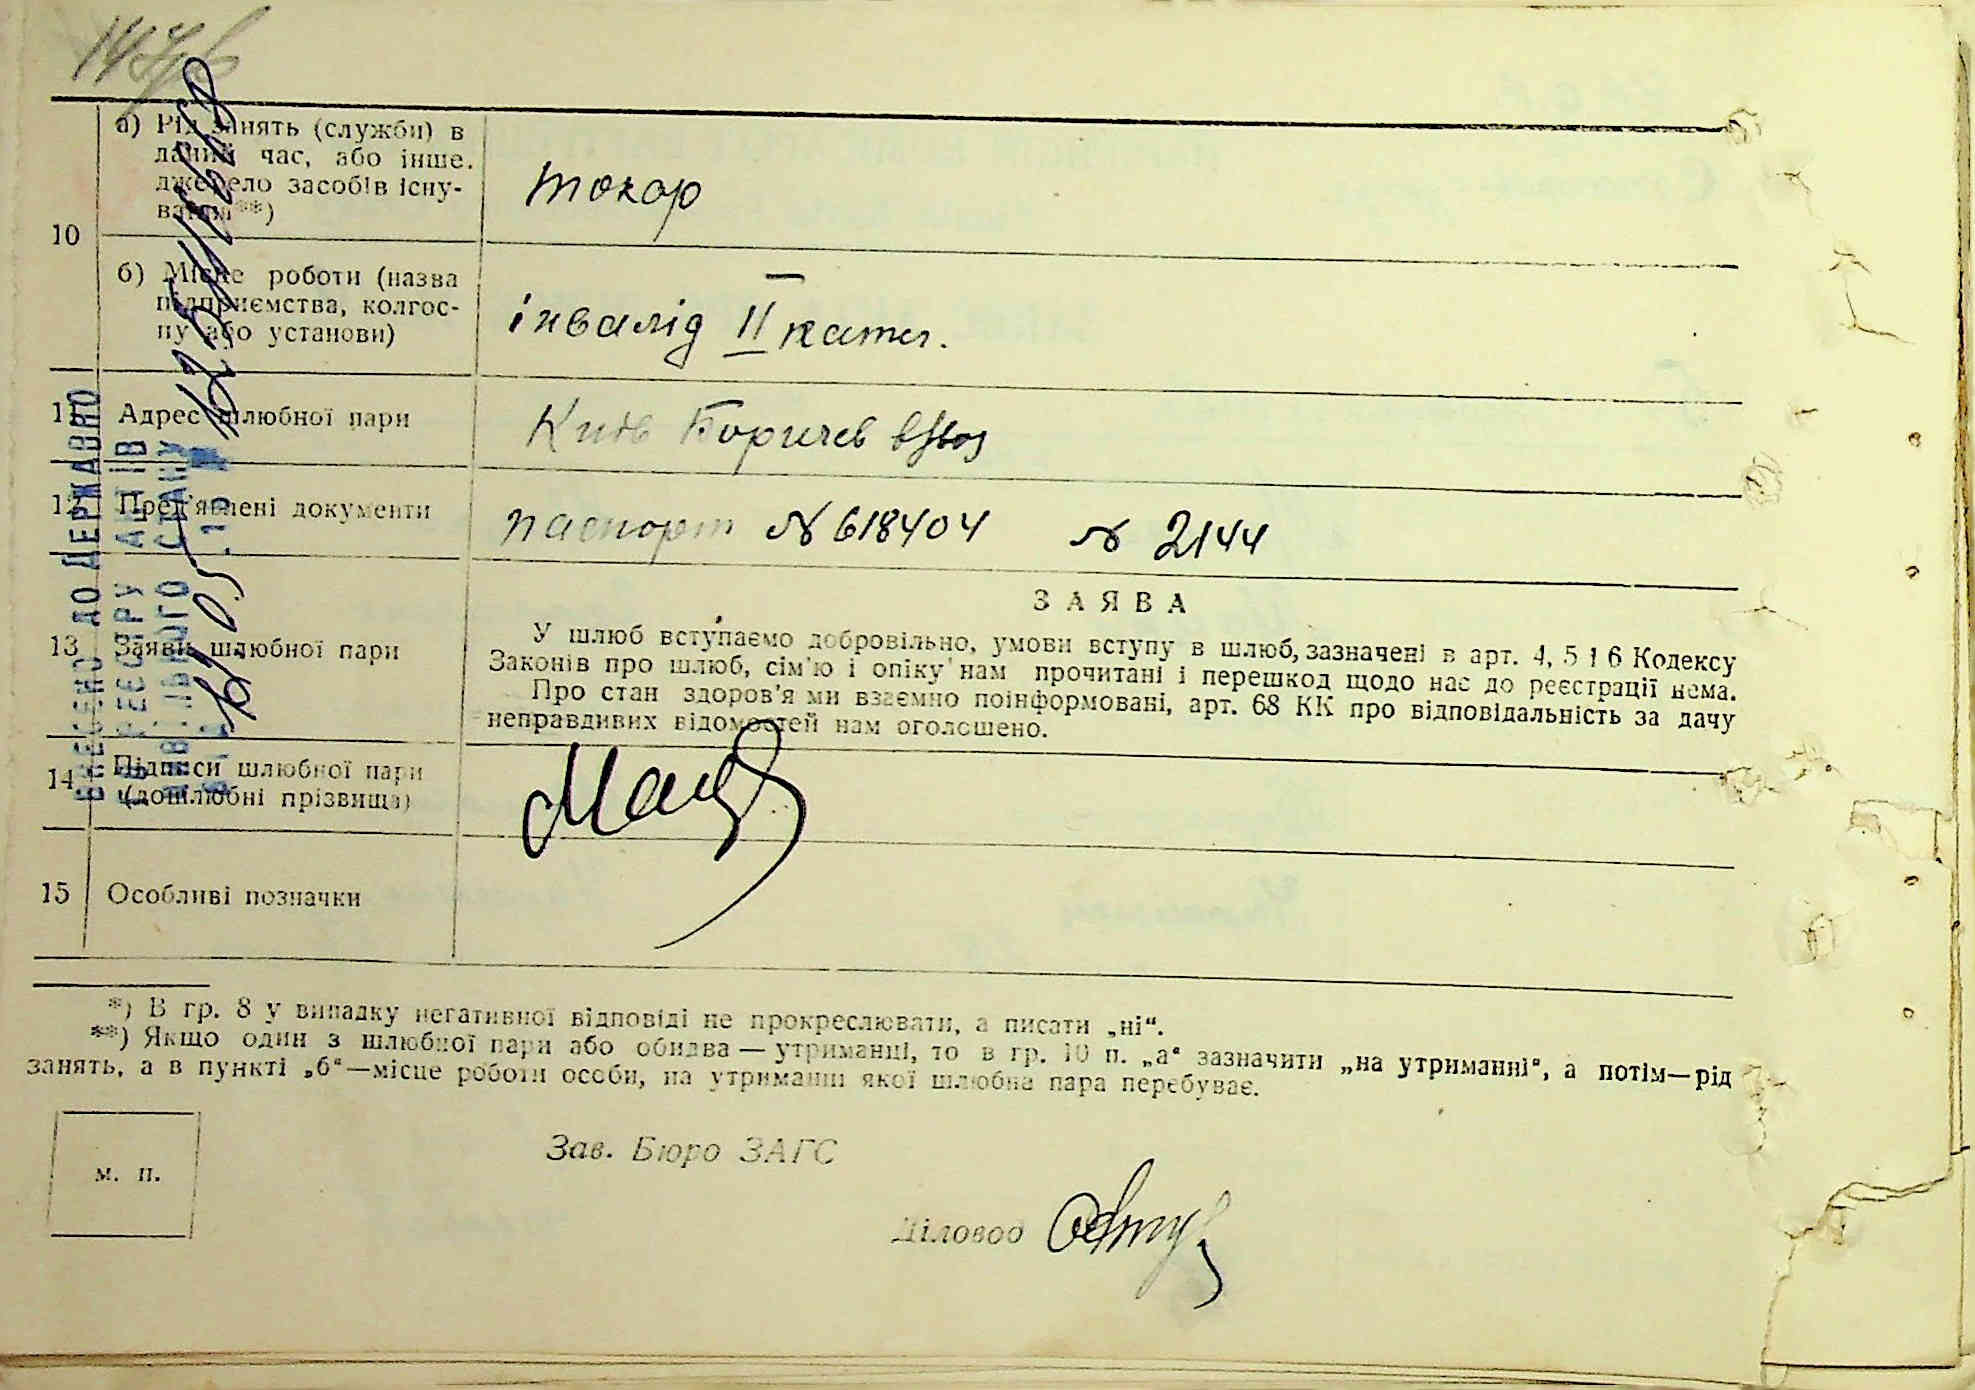 10
а) Рід занять (служби) в
даний час, або інше
джерело засобів існу-
вання**)
токар
б) Місце роботи (назва
підприємства, колгос-
пу або установи)
інвалід II катег.
11 Адрес шлюбної пари
Київ Боричев
12 Пред'явлені документи
паспорт № 618404 № 2144
13 Заяви шлюбної пари
ЗАЯВА
У шлюб вступаємо добровільно, умови вступу в шлюб, зазначені в арт. 4, 5 і 6 Кодексу
Законів про шлюб, сім'ю і опіку нам прочитані і перешкод щодо нас до реєстрації нема.
Про стан здоров'я ми взаємно поінформовані, арт. 68 КК про відповідальність за дачу
неправдивих відомостей нам оголошено.
14 Підписи шлюбної пари
(дошлюбні прізвища)
15 Особливі позначки
*) В гр. 8 у випадку негативної відповіді не прокреслювати, а писати „ні“.
**) Якщо один з шлюбної пари або обидва — утриманці, то в гр. 10 п. „а“ зазначити „на утриманні“, а потім—рід
занять, а в пункті „б“—місце роботи особи, на утриманні якої шлюбна пара перебуває.
м. п.
Зав. Бюро ЗАГС
Діловод
ВНЕСЕНО ДО ДЕРЖАВНО
РЕЄСТРУ АКТІВ
ЦИВІЛЬНОГО СТАНУ